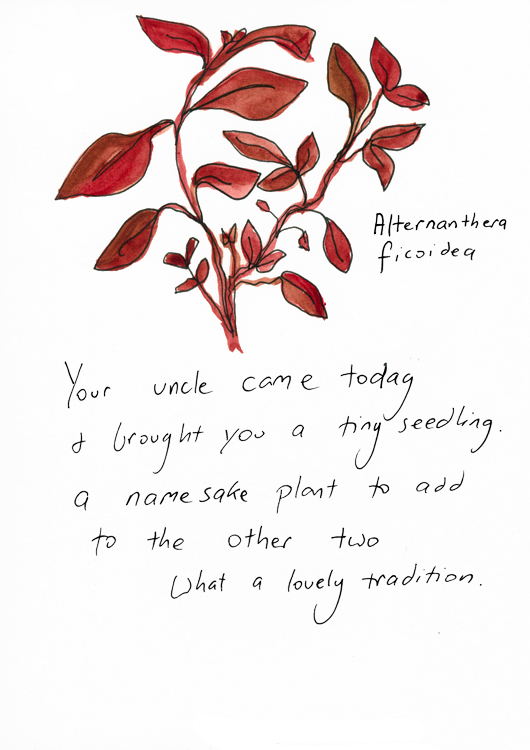 Alternanthera
ficoidea
Your uncle came today
& brought you a tiny seedling.
a namesake plant to add
to the other two
What a lovely tradition.